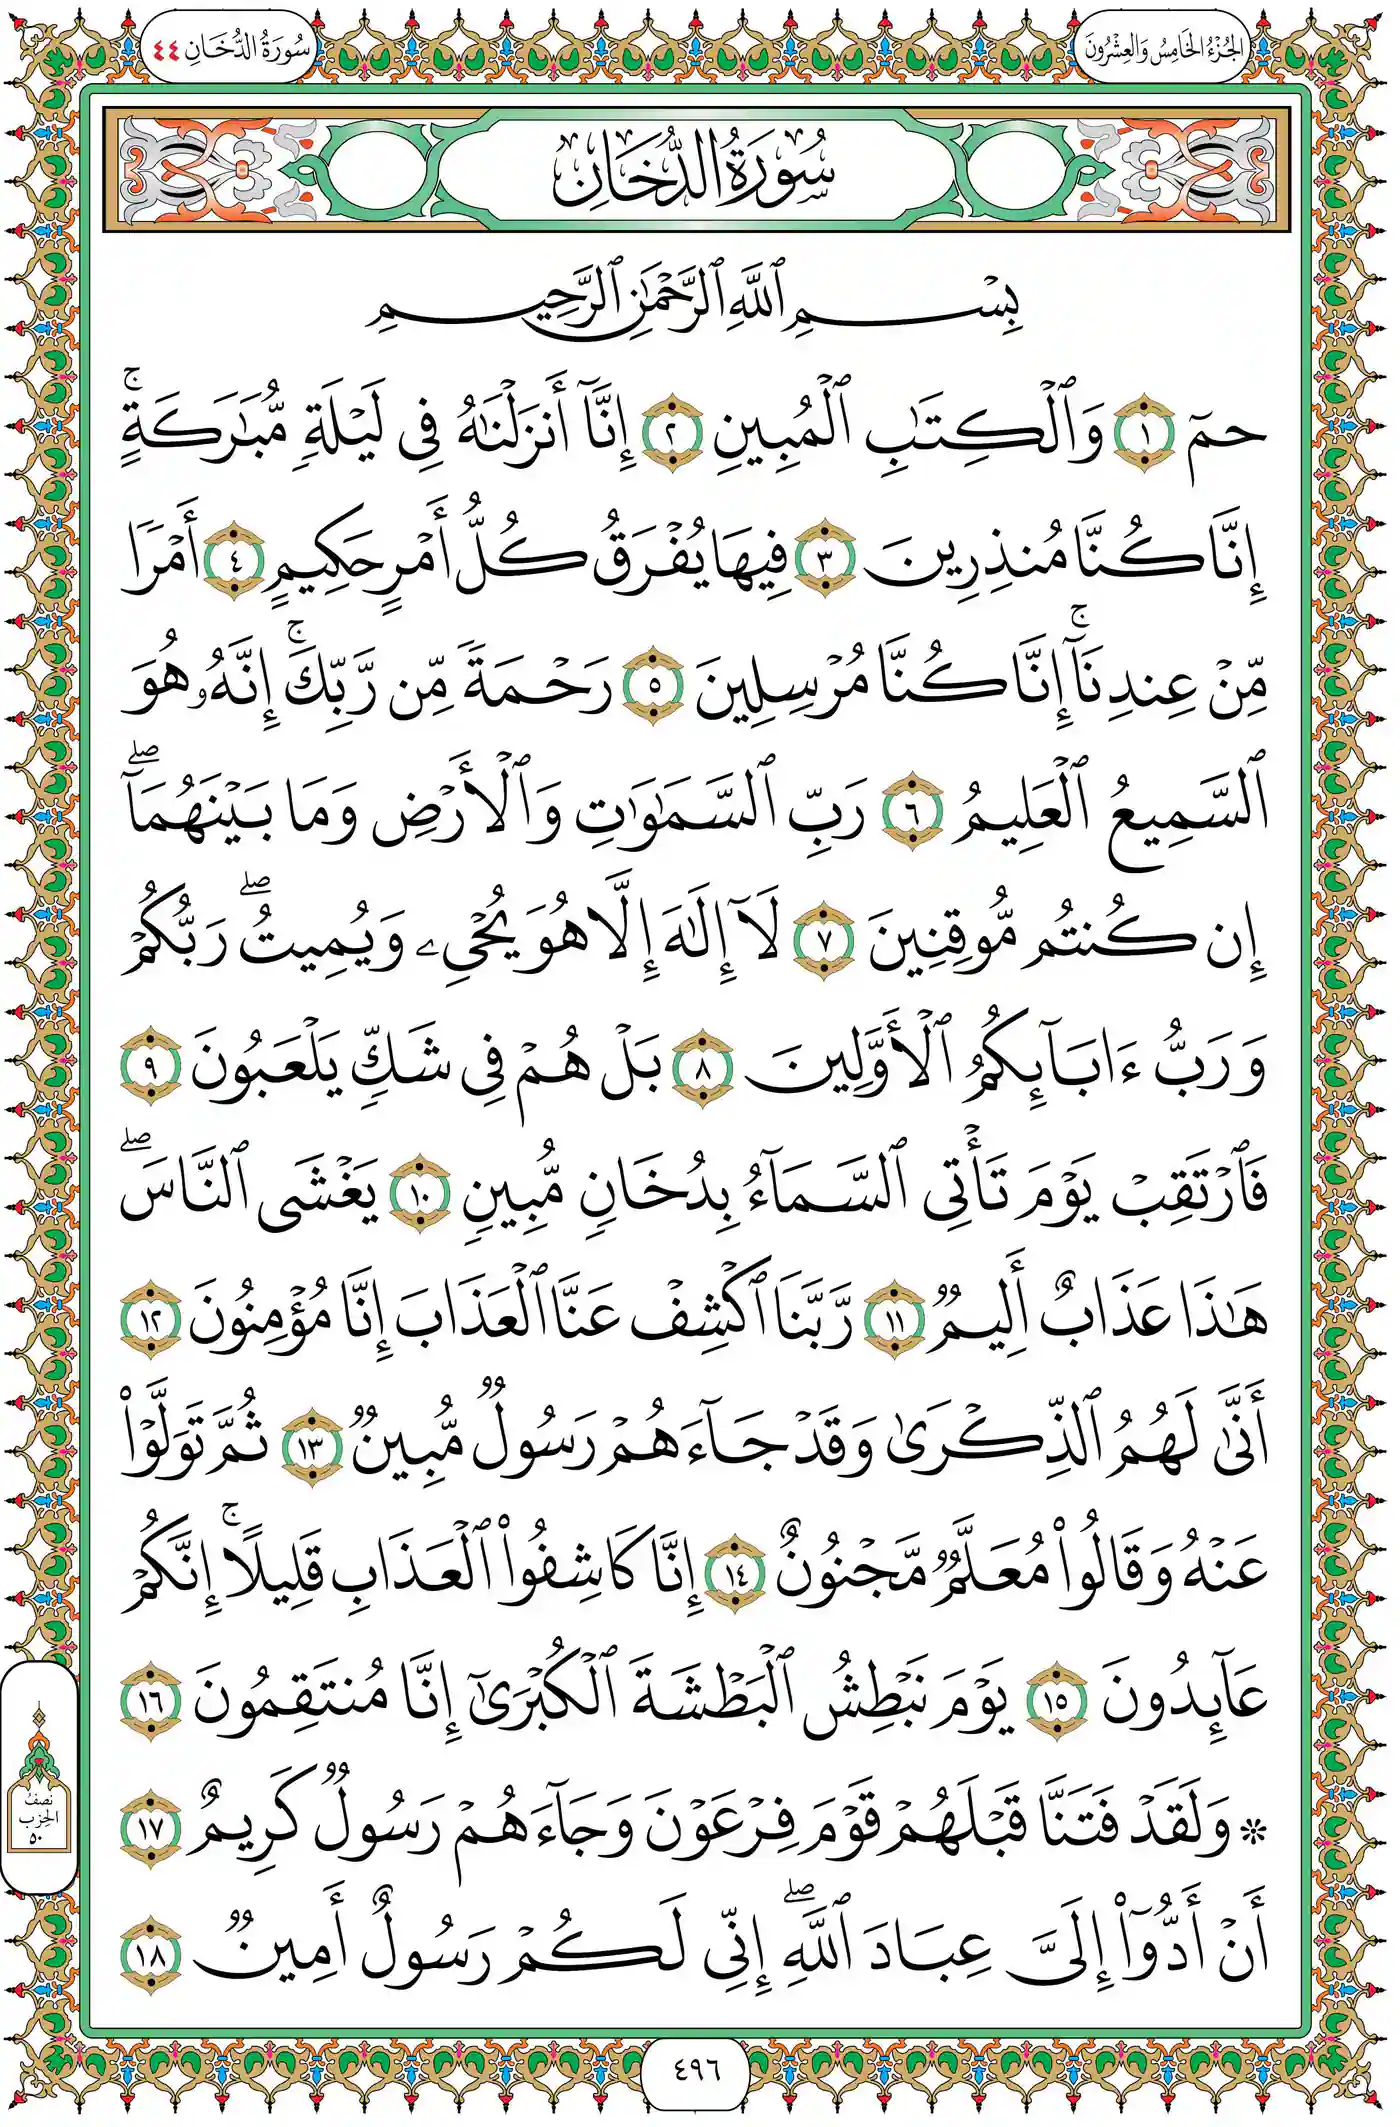 الجُزْءُ الخَامِسُ وَالعِشْرُونَ
سُورَةُ الدُّخَانِ ٤٤
سُورَةُ الدُّخَانِ
بِسْمِ ٱللَّهِ ٱلرَّحْمَٰنِ ٱلرَّحِيمِ
حمٓ ١ وَٱلْكِتَٰبِ ٱلْمُبِينِ ٢ إِنَّآ أَنزَلْنَٰهُ فِى لَيْلَةٍ مُّبَٰرَكَةٍ ۚ
إِنَّا كُنَّا مُنذِرِينَ ٣ فِيهَا يُفْرَقُ كُلُّ أَمْرٍ حَكِيمٍ ٤ أَمْرًا
مِّنْ عِندِنَآ ۚ إِنَّا كُنَّا مُرْسِلِينَ ٥ رَحْمَةً مِّن رَّبِّكَ ۚ إِنَّهُۥ هُوَ
ٱلسَّمِيعُ ٱلْعَلِيمُ ٦ رَبِّ ٱلسَّمَٰوَٰتِ وَٱلْأَرْضِ وَمَا بَيْنَهُمَآ ۖ
إِن كُنتُم مُّوقِنِينَ ٧ لَآ إِلَٰهَ إِلَّا هُوَ يُحْىِۦ وَيُمِيتُ ۖ رَبُّكُمْ
وَرَبُّ ءَابَآئِكُمُ ٱلْأَوَّلِينَ ٨ بَلْ هُمْ فِى شَكٍّ يَلْعَبُونَ ٩
فَٱرْتَقِبْ يَوْمَ تَأْتِى ٱلسَّمَآءُ بِدُخَانٍ مُّبِينٍ ١٠ يَغْشَى ٱلنَّاسَ ۖ
هَٰذَا عَذَابٌ أَلِيمٌ ١١ رَّبَّنَا ٱكْشِفْ عَنَّا ٱلْعَذَابَ إِنَّا مُؤْمِنُونَ ١٢
أَنَّىٰ لَهُمُ ٱلذِّكْرَىٰ وَقَدْ جَآءَهُمْ رَسُولٌ مُّبِينٌ ١٣ ثُمَّ تَوَلَّوْا۟
عَنْهُ وَقَالُوا۟ مُعَلَّمٌ مَّجْنُونٌ ١٤ إِنَّا كَاشِفُوا۟ ٱلْعَذَابِ قَلِيلًا ۚ إِنَّكُمْ
عَآئِدُونَ ١٥ يَوْمَ نَبْطِشُ ٱلْبَطْشَةَ ٱلْكُبْرَىٰٓ إِنَّا مُنتَقِمُونَ ١٦
* وَلَقَدْ فَتَنَّا قَبْلَهُمْ قَوْمَ فِرْعَوْنَ وَجَآءَهُمْ رَسُولٌ كَرِيمٌ ١٧
أَنْ أَدُّوٓا۟ إِلَىَّ عِبَادَ ٱللَّهِ ۖ إِنِّى لَكُمْ رَسُولٌ أَمِينٌ ١٨
نصفُ
الحِزب
٥٠
٤٩٦